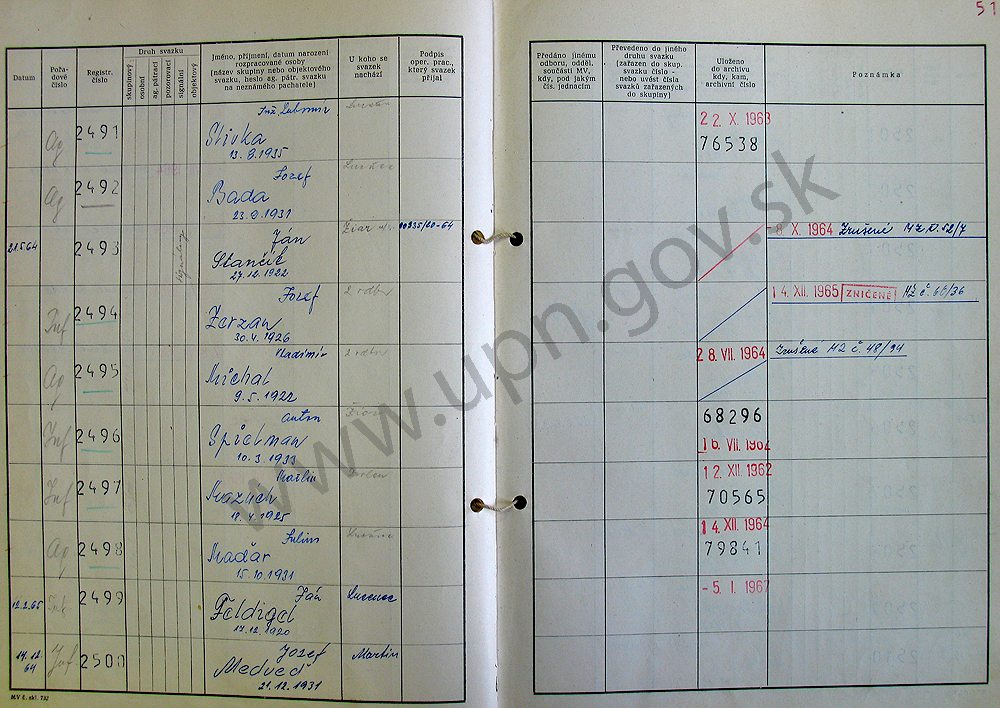 51
Datum
Pořa-
dové
číslo
Registr.
číslo
Druh svazku
skupinový
osobní
ag. pátrací
pozorovací
signální
objektový
Jméno, příjmení, datum narození
rozpracované osoby
(název skupiny nebo objektového
svazku, heslo ag. pátr. svazku
na neznámého pachatele)
U koho se
svazek
nachází
Podpis
oper. prac.,
který svazek
přijal
Předáno jinému
odboru, odděl.
součásti MV,
kdy, pod jakým
čís. jednacím
Převedeno do jiného
druhu svazku
(zařazen do skup.
svazku číslo -
nebo uvést čísla
svazků zařazených
do skupiny)
Uloženo
do archivu
kdy, kam,
archivní číslo
Poznámka
Ag 2491 Inž. Lubomír
Slivka
13. 8. 1935
22. X. 1963
76538
Ag 2492 Jozef
Bada
23. 9. 1931
21.5.64 2493 Ján Žiar 10935/20-64
Stančík
27. 12. 1922
-8. X. 1964 Zrušené MZ č. 52/7
Inf 2494 Jozef 2 odbor
Zerzan
30. 4. 1926
14. XII. 1965 ZNIČENÉ MZ č. 66/36
Ag 2495 Vladimír 2 odbor
Michal
9. 5. 1922
28. VII. 1964 Zrušené MZ č. 48/94
Inf 2496 Anton
Spielman
10. 3. 1933
68296
16. VII. 1962
Inf 2497 Martin
Mazuch
18. 4. 1925
12. XII. 1962
70565
Ag 2498 Julius
Maďar
15. 10. 1931
14. XII. 1964
79841
12.2.65 2499 Ján Lucenec
Feldigel
17. 12. 1920
-5. I. 1967
14.12.
64 Inf 2500 Jozef Martin
Medveď
21. 12. 1931
MV č. skl. 732
www.upn.gov.sk